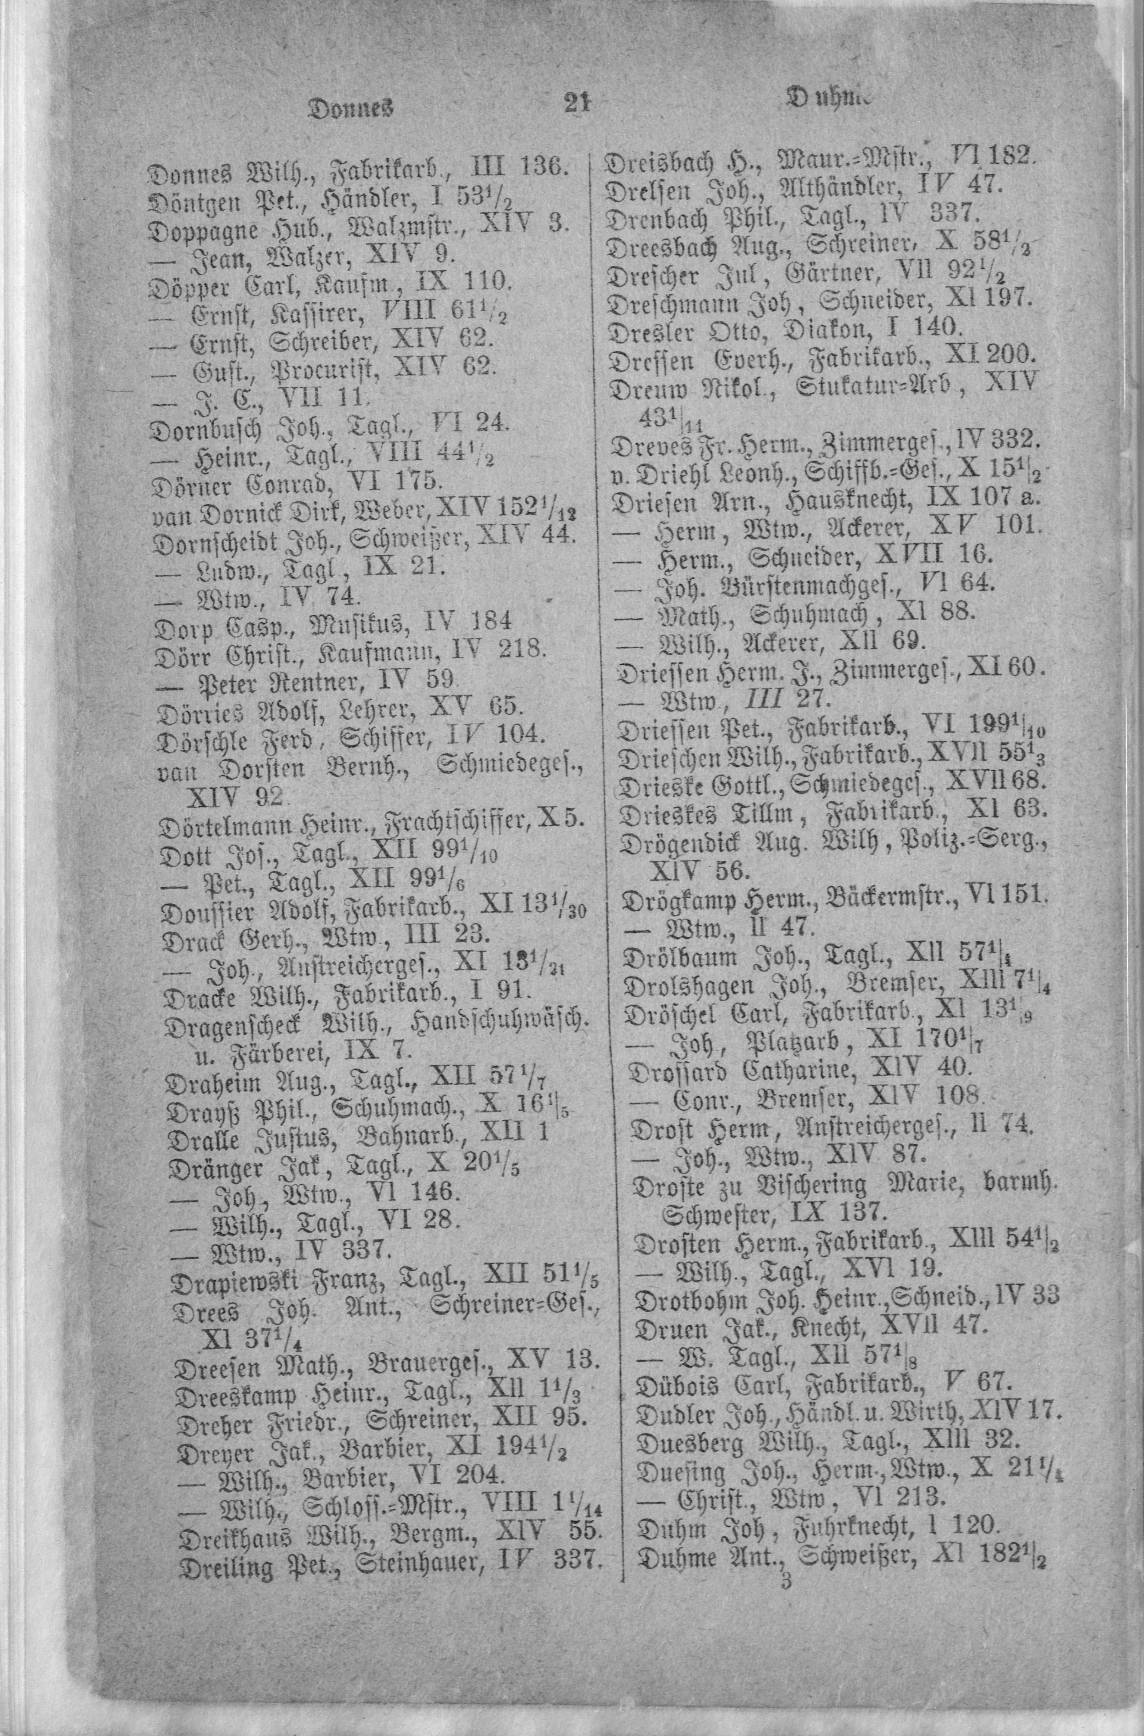 Donnes
21
Duhm
Donnes Wilh., Fabrikarb., III 136.
Döntgen Pet., Händler, I 53 1/2
Doppagne Hub., Walzmstr., XIV 3.
— Jean, Walzer, XIV 9.
Döpper Carl, Kaufm., IX 110.
— Ernst, Kassirer, VIII 61 1/2
— Ernst, Schreiber, XIV 62.
— Gust., Procurist, XIV 62.
— J. C., VII 11.
Dornbusch Joh., Tagl., VI 24.
— Heinr., Tagl., VIII 44 1/2
Dörner Conrad, VI 175.
van Dornick Dirk, Weber, XIV 152 1/12
Dornscheidt Joh., Schweißer, XIV 44.
— Ludw., Tagl, IX 21.
— Wtw., IV 74.
Dorp Casp., Musikus, IV 184
Dörr Christ., Kaufmann, IV 218.
— Peter Rentner, IV 59
Dörries Adolf, Lehrer, XV 65.
Dörschle Ferd, Schiffer, IV 104.
van Dorsten Bernh., Schmiedeges.,
XIV 92
Dörtelmann Heinr., Frachtschiffer, X 5.
Dott Jos., Tagl., XII 99 1/10
— Pet., Tagl., XII 99 1/6
Doussier Adolf, Fabrikarb., XI 13 1/30
Drack Gerh., Wtw., III 23.
— Joh., Anstreicherges., XI 13 1/21
Dracke Wilh., Fabrikarb., I 91.
Dragenscheck Wilh., Handschuhwäsch.
u. Färberei, IX 7.
Draheim Aug., Tagl., XII 57 1/7
Drayß Phil., Schuhmach., X 16 1/5
Dralle Justus, Bahnarb., XII 1
Dränger Jak, Tagl., X 20 1/5
— Joh, Wtw., VI 146.
— Wilh., Tagl., VI 28.
— Wtw., IV 337.
Drapiewski Franz, Tagl., XII 51 1/5
Drees Joh. Ant., Schreiner-Ges.,
XI 37 1/4
Dreesen Math., Brauerges., XV 13.
Dreeskamp Heinr., Tagl., XII 1 1/3
Dreher Friedr., Schreiner, XII 95.
Dreyer Jak., Barbier, XI 194 1/2
— Wilh., Barbier, VI 204.
— Wilh., Schloss.-Mstr., VIII 1 1/14
Dreikhaus Wilh., Bergm., XIV 55.
Dreiling Pet., Steinhauer, IV 337.
Dreisbach H., Maur.-Mstr., VI 182.
Drelsen Joh., Althändler, IV 47.
Drenbach Phil., Tagl., IV 337.
Dreesbach Aug., Schreiner, X 58 1/2
Drescher Jul, Gärtner, VII 92 1/2
Dreschmann Joh, Schneider, XI 197.
Dresler Otto, Diakon, I 140.
Dressen Everh., Fabrikarb., XI 200.
Dreuw Nikol., Stukatur-Arb, XIV
43 1/11
Dreves Fr. Herm., Zimmerges., IV 332.
v. Driehl Leonh., Schiffb.-Ges., X 15 1/2
Driesen Arn., Hausknecht, IX 107 a.
— Herm, Wtw., Ackerer, XV 101.
— Herm., Schneider, XVII 16.
— Joh. Bürstenmachges., VI 64.
— Math., Schuhmach, XI 88.
— Wilh., Ackerer, XII 69.
Driessen Herm. J., Zimmerges., XI 60.
— Wtw, III 27.
Driessen Pet., Fabrikarb., VI 199 1/10
Drieschen Wilh., Fabrikarb., XVII 55 1 3
Drieske Gottl., Schmiedeges., XVII 68.
Drieskes Tillm, Fabrikarb., XI 63.
Drögendick Aug. Wilh, Poliz.-Serg.,
XIV 56.
Drögkamp Herm., Bäckermstr., VI 151.
— Wtw., II 47.
Drölbaum Joh., Tagl., XII 57 1/4
Drolshagen Joh., Bremser, XIII 7 1/4
Dröschel Carl, Fabrikarb., XI 13 1/9
— Joh, Platzarb, XI 170 1/7
Drossard Catharine, XIV 40.
— Conr., Bremser, XIV 108.
Drost Herm, Anstreicherges., II 74.
— Joh., Wtw., XIV 87.
Droste zu Vischering Marie, barmh.
Schwester, IX 137.
Drosten Herm., Fabrikarb., XIII 54 1/2
— Wilh., Tagl., XVI 19.
Drotbohm Joh. Heinr., Schneid., IV 33
Druen Jak., Knecht, XVII 47.
— W. Tagl., XII 57 1/8
Dübois Carl, Fabrikarb., V 67.
Dudler Joh., Händl. u. Wirth, XIV 17.
Duesberg Wilh., Tagl., XIII 32.
Duesing Joh., Herm., Wtw., X 21 1/4
— Christ., Wtw, VI 213.
Duhm Joh, Fuhrknecht, I 120.
Duhme Ant., Schweißer, XI 182 1/2
3